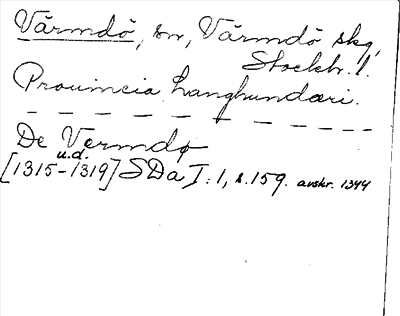 Värmdö, sn, Värmdö skg,
Stockh. l.
Prouincia Langhundæri.
De Vermdø
u.d.
[1315-1319] SDa I:1, s.159. avskr. 1344